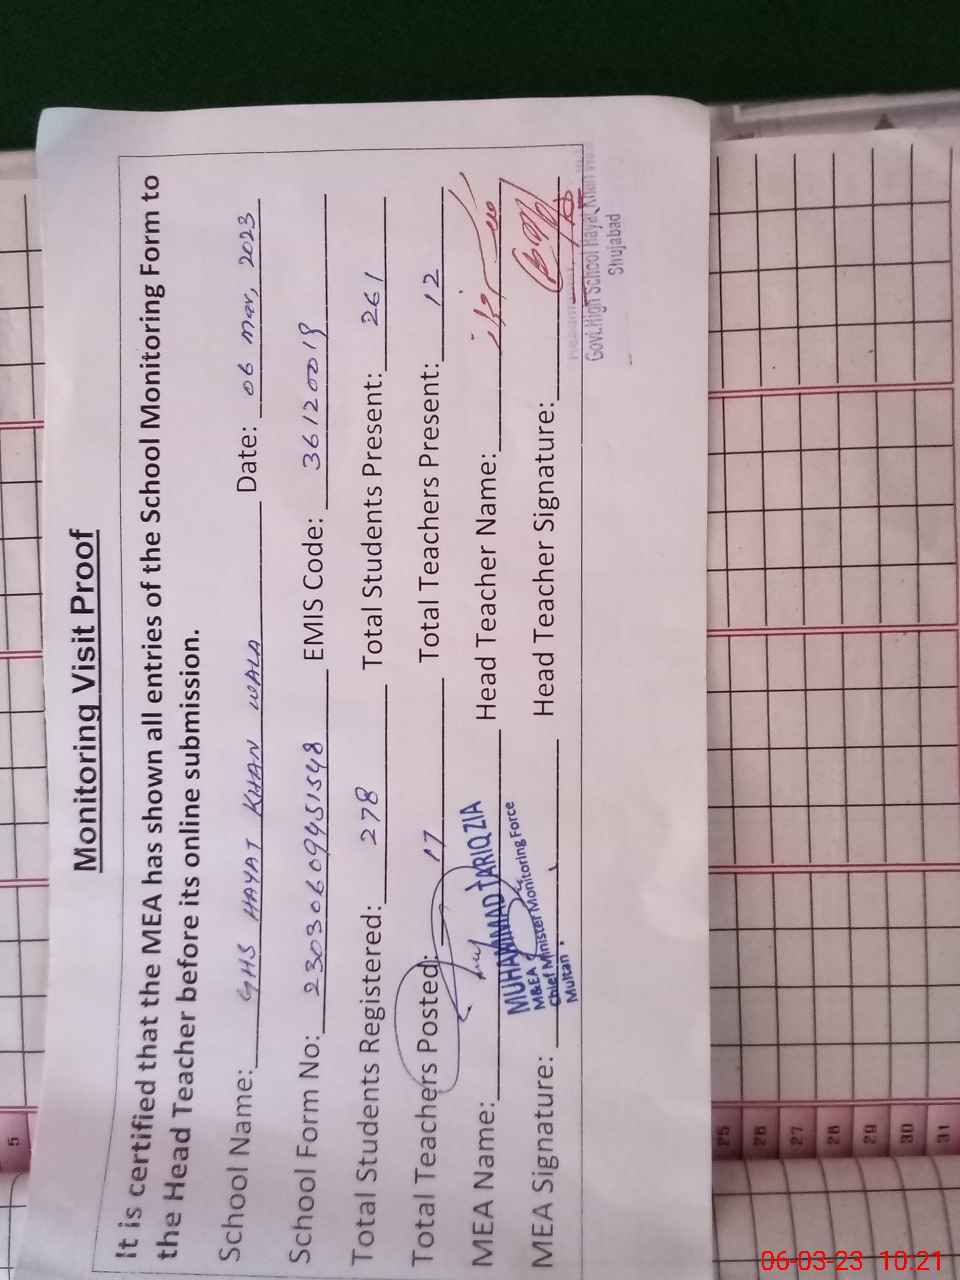 Monitoring Visit Proof
It is certified that the MEA has shown all entries of the School Monitoring Form to
the Head Teacher before its online submission.
School Name: GHS HAYAT KHAN WALA Date: 06 mar, 2023
School Form No: 23030609451548 EMIS Code: 36120019
Total Students Registered: 278 Total Students Present: 261
Total Teachers Posted: 17 Total Teachers Present: 12
MEA Name: Head Teacher Name:
MUHAMMAD TARIQ ZIA
M&EA
Chief Minister Monitoring Force
Multan
MEA Signature: Head Teacher Signature:
Govt. High School Hayat Khan
Shujabad
5
25
26
27
28
29
30
31
06-03-23 10:21